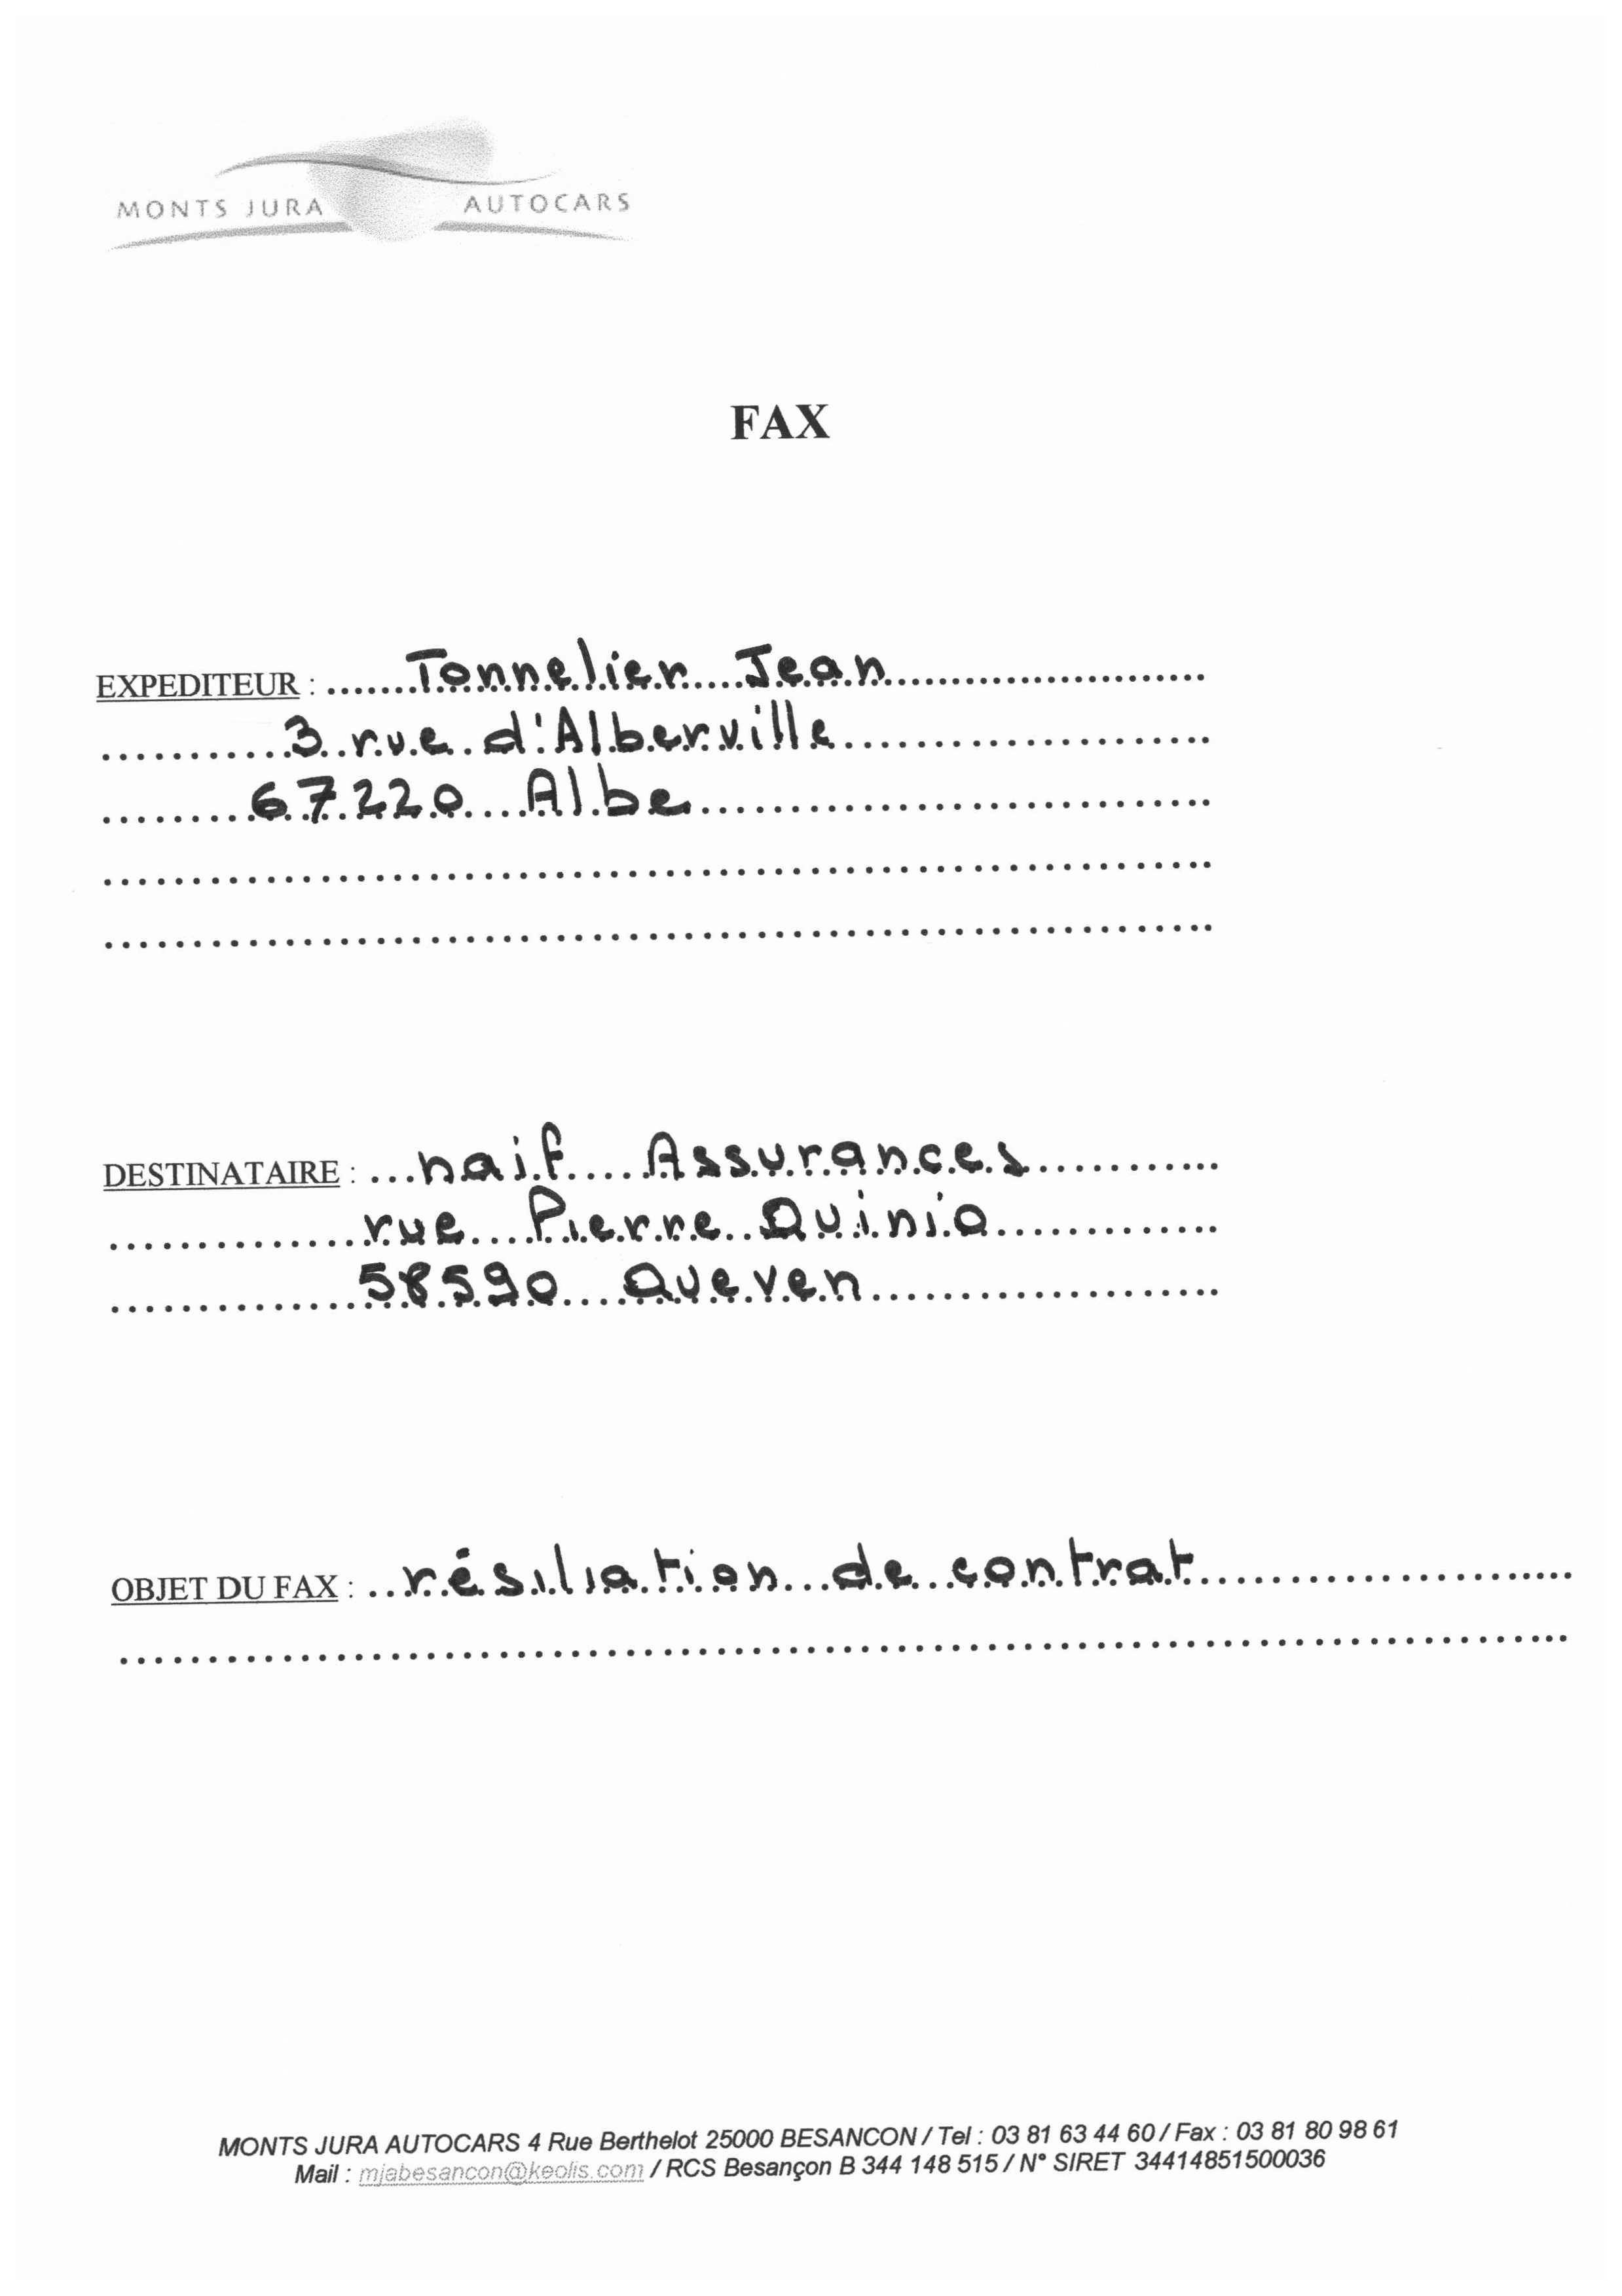 MONTS JURA AUTOCARS
FAX
EXPEDITEUR : Tonnelier Jean
3 rue d'Alberville
67220 Albe
DESTINATAIRE : naif Assurances
rue Pierre Quinio
58590 Queven
OBJET DU FAX : résiliation de contrat
MONTS JURA AUTOCARS 4 Rue Berthelot 25000 BESANCON / Tel : 03 81 63 44 60 / Fax : 03 81 80 98 61
Mail : mjabesancon@keolis.com / RCS Besançon B 344 148 515 / N° SIRET 34414851500036